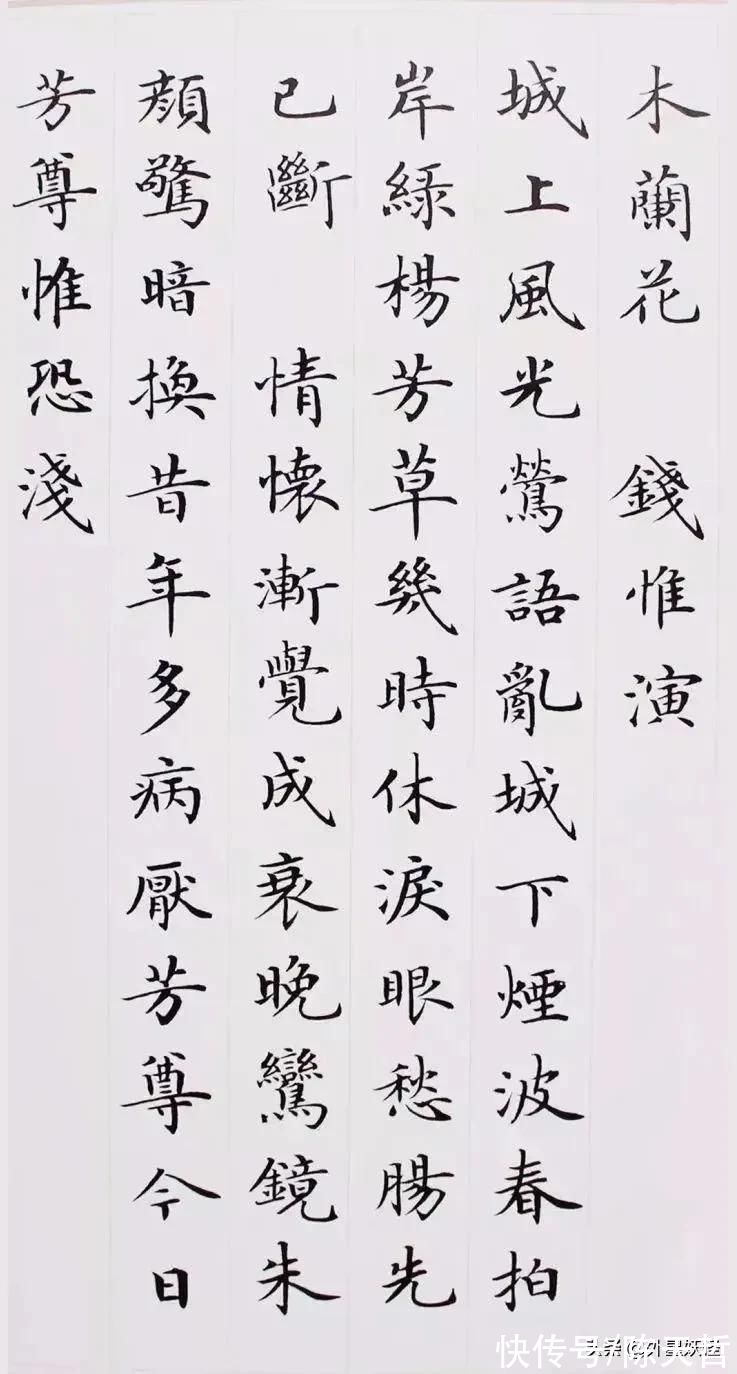 木蘭花 錢惟演
城上風光鶯語亂城下煙波春拍
岸綠楊芳草幾時休淚眼愁腸先
已斷 情懷漸覺成衰晚鸞鏡朱
顏驚暗換昔年多病厭芳尊今日
芳尊惟恐淺
快传号/陈天哲